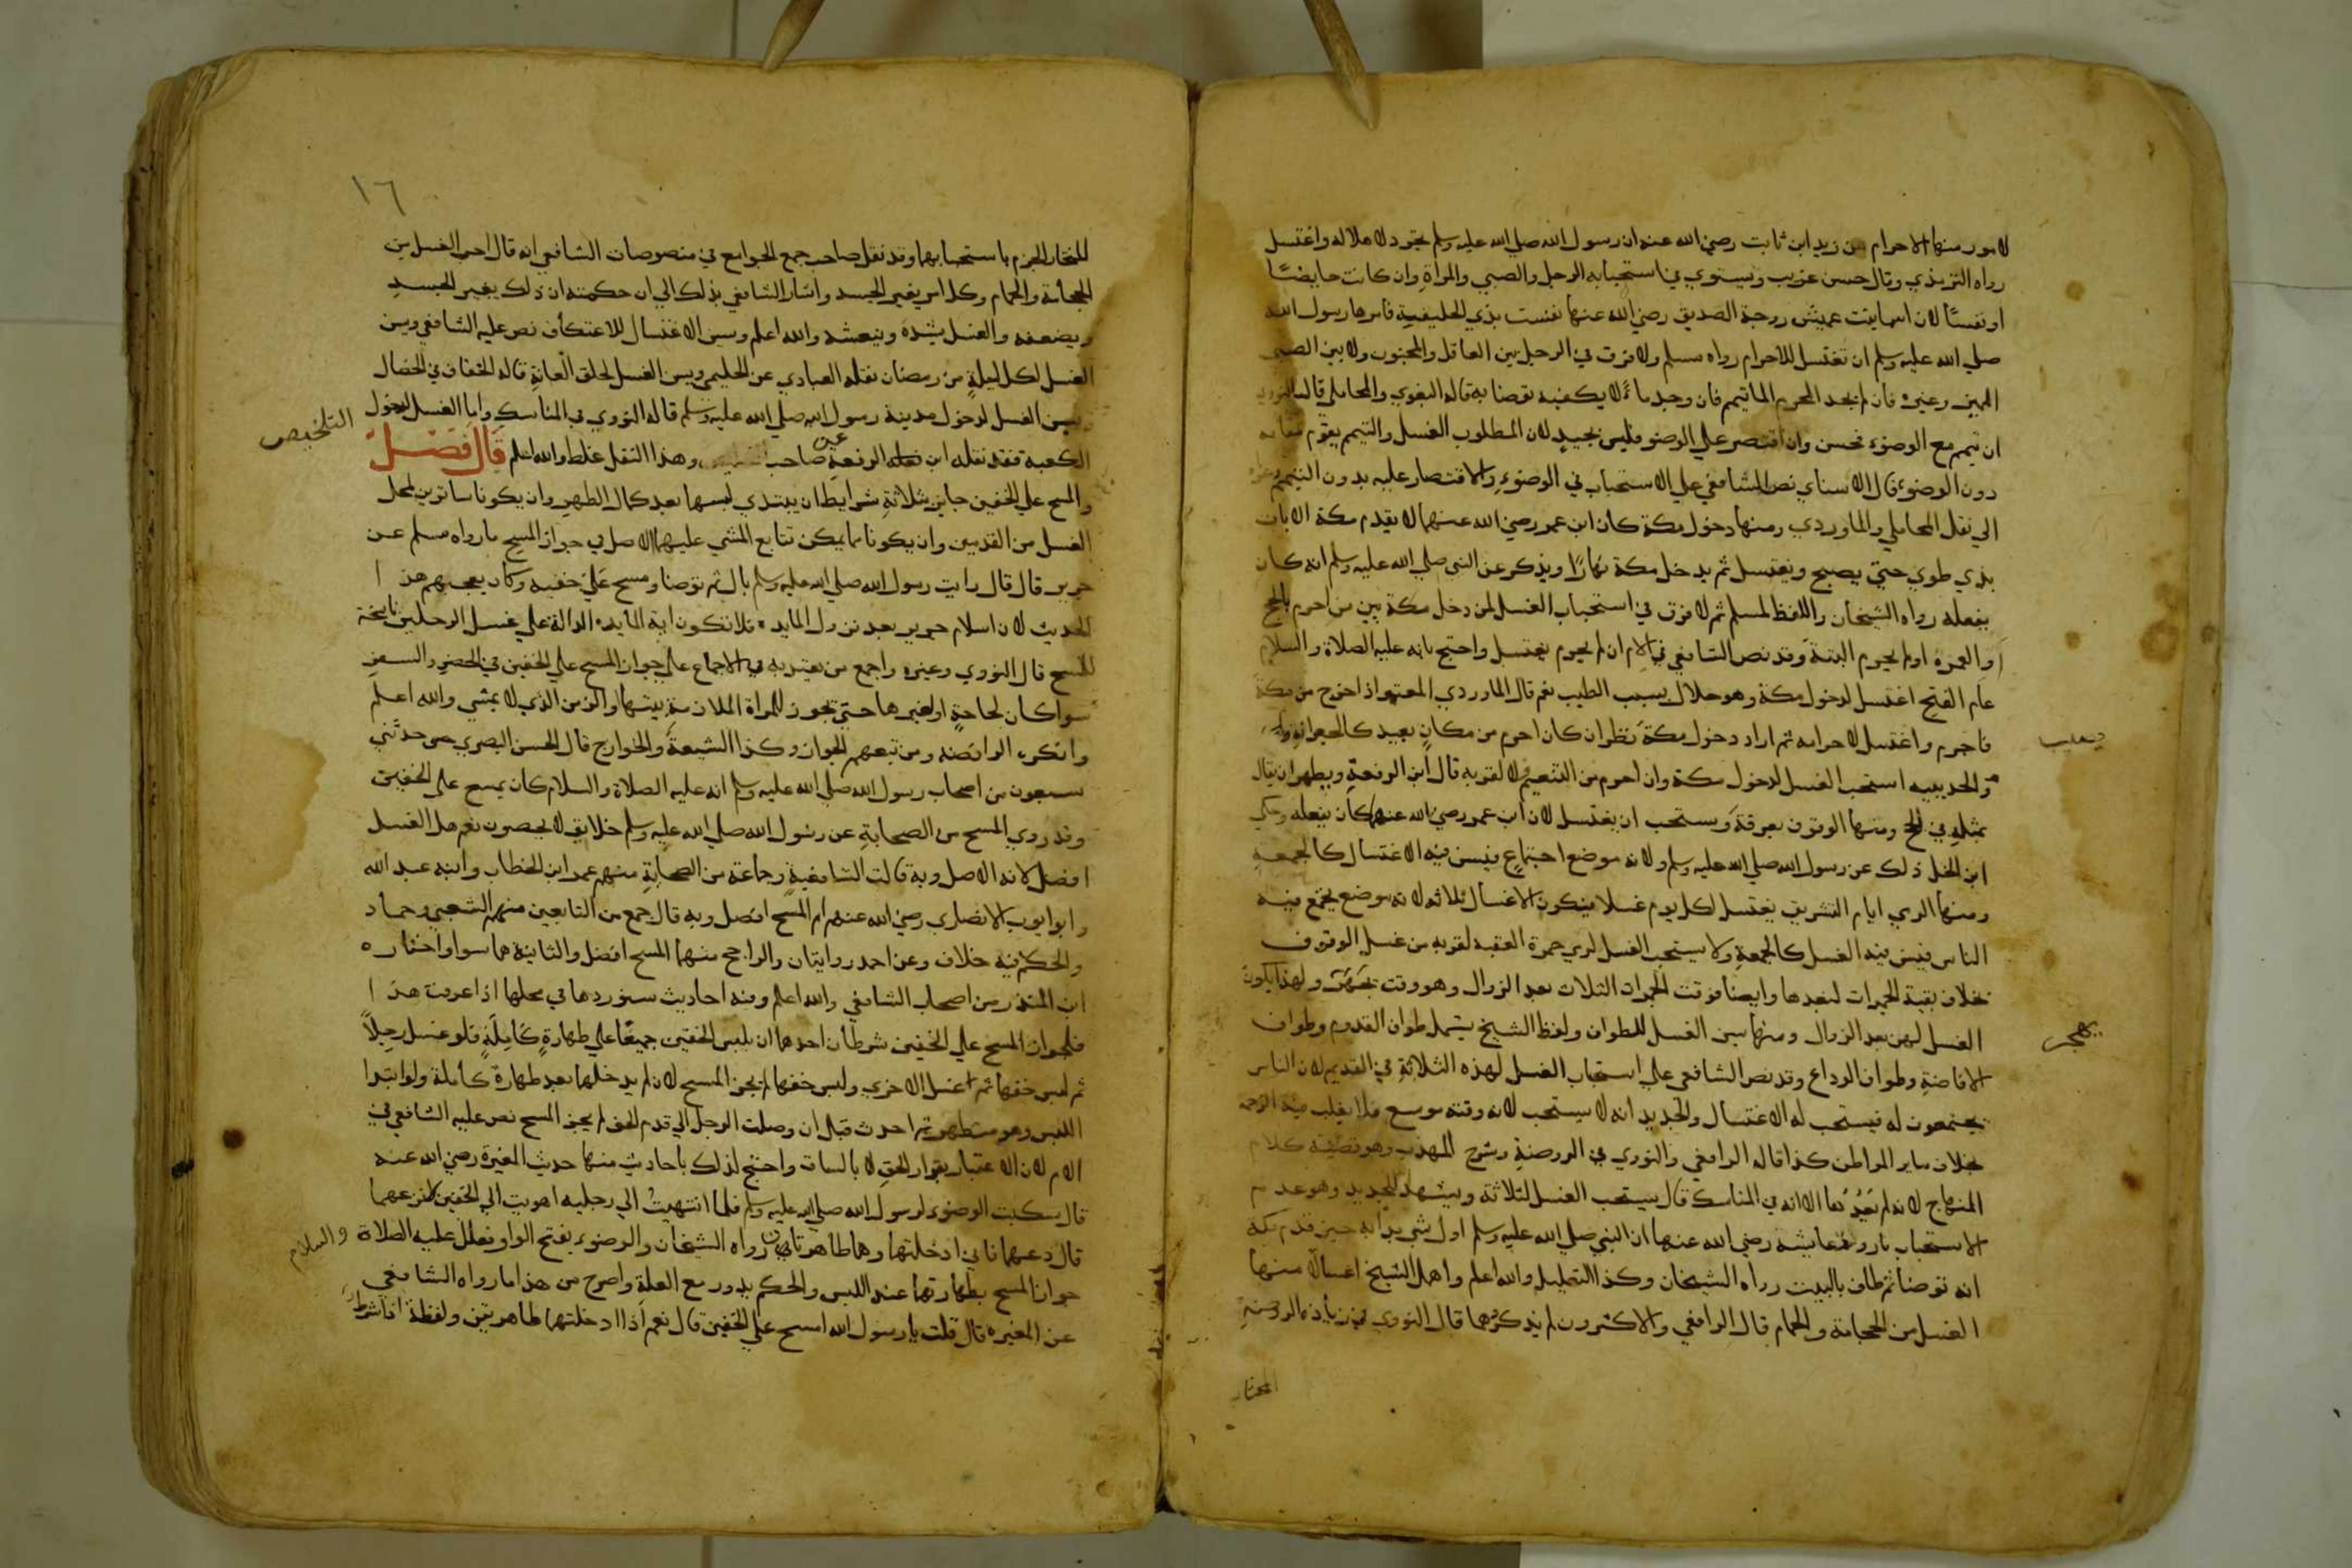 لامور منها الاحرام عن زيد ابن ثابت رضي الله عنه ان رسول الله صلى الله عليه وسلم تجرد لاهلاله واغتسل
رواه الترمذي وقال حسن غريب ويستوي في استحبابه الرجل والصبي والمراة وان كانت حايضًا
او نفسًا لان اسما بنت عميس زوجة الصديق رضي الله عنها نفست بذي الحليفة فامرها رسول الله
صلي الله عليه وسلم ان تغتسل للاحرام رواه مسلم ولا فرق في الرجل بين العاقل والمجنون ولا بين الصبي
المميز وغيره فان لم يجد المحرم الماتيمم فان وجد ماءً لا يكفيه توضا به قاله البغوي والمحاملي قال النووي
ان تيمم مع الوضوء فحسن وان اقتصر علي الوضو فليس بجيد لان المطلوب الغسل والتيمم يقوم مقامه
دون الوضوء قال الاسناي نص الشافعي علي الاستحباب في الوضوءِ والاقتصار عليه بدون التيمم
الي نقل المحاملي والماوردي ومنها دخول مكة كان ابن عمر رضي الله عنهما لا يقدم مكة الا بات
بذي طوي حتي يصبح ويغتسل ثم يدخل مكة نهارًا ويذكر عن النبي صلي الله عليه وسلم انه كان
يفعله رواه الشيخان واللفظ لمسلم ثم لا فرق في استحباب الغسل لمن دخل مكة بين من احرم بالحج
او العمرة او لم يحرم البتة وقد نص الشافعي في الام ان لم يحرم يغتسل واحتج بانه عليه الصلاة والسلام
عام الفتح اغتسل لدخول مكة وهو حلال يسبب الطيب نعم قال الماوردي المعتمر اذا خرج من مكة
فاحرم واغتسل لاحرامه ثم اراد دخول مكة نظر ان كان احرم من مكانٍ بعيد كالجعرانة
والحديبيه استحب الغسل لدخول مكة وان احرم من التنعيم لا لقربه قال ابن الرفعة ويظهر ان يقال
بمثله في الحج ومنها الوقوف بعرفة ويستحب ان يغتسل لان ابن عمر رضي الله عنهما كان يفعله وحكي
ابن الخل ذلك عن رسول الله صلي الله عليه وسلم ولانه موضع اجتماعٍ فيسن فيه الاغتسال كالجمعة
ومنها الرمي ايام التشريق يغتسل لكل يوم غسلا فيكون الاغسال ثلاثه لانه موضع يجتمع فيه
الناس فيسن فيه الغسل كالجمعةِ ولا يستحب الغسل لرمي جمرة العقبه لقربه من غسل الوقوف
بخلاف بقية الجمرات لبعدها وايضا فوقت الجمرات الثلاث بعد الزوال وهو وقت ولهذا يكون
الغسل لهن بعد الزوال ومنها يسن الغسل للطواف ولفظ الشيخ يشمل طواف القدوم وطواف
الافاضةِ وطواف الوداع وقد نص الشافعي علي استحباب الغسل لهذه الثلاثةِ في القديم لان الناس
يجتمعون له فيستحب له الاغتسال والجديد انه لا يستحب لانه وقته موسع فلا يغلب فيه الزحمة
بخلاف ساير المواطن كذا قاله الرافعي والنووي في الروضةِ وشرح المهذب وهو قضية كلام
المنهاج لانه لم الا انه في المناسك قال يستحب الغسل لثلاثة ويشهد للجديد وهو عدم
الاستحباب ما روته عايشه رضي الله عنها ان النبي صلي الله عليه وسلم اول شي بدا به حين قدم مكة
انه توضا ثم طاف بالبيت رواه الشيخان وكذا التعليل والله اعلم واهمل الشيخ اغسالًا منها
الغسل من الحجامة والحمام قال الرافعي والاكثرون لم يذكروهما قال النووي في زيادة الروضةِ
المختار
١٦
المختار الجزم باستحبابهما وقد نقل صاحب جمع الجوامع في منصوصات الشافعي انه قال احب الغسل من
الحجامة والحمام وكل امر يغير الجسد واشار الشافعي بذلك الي ان حكمته ان ذلك يغير الجسد
ويضعفه والغسل يشده وينعشه والله اعلم ويسن الاغتسال للاعتكاف نص عليه الشافعي ويسن
الغسل لكل ليلةٍ من رمضان نقله العبادي عن الحليمي ويسن الغسل لحلق العانةِ قاله الخفاف في الخصال
ويسن الغسل لدخول مدينة رسول الله صلي الله عليه وسلم قاله النووي في المناسك واما الغسل لدخول
الكعبه فقد نقله ابن الرفعة عن صاحب التلخيص وهذا النقل غلط والله اعلم قال فصل
والمسح علي الخفين جايز بثلاثةِ شرايط ان يبتدي لبسهما بعد كمال الطهر وان يكونا ساترين لمحل
الغسل من القدمين وان يكونا مما يمكن تتابع المشي عليهما الاصل في جواز المسح ما رواه مسلم عن
جرير قال قال رايت رسول الله صلي الله عليه وسلم بال ثم توضا ومسح علي خفيه وكان يعجبهم هذا
الحديث لان اسلام جرير بعد نزول المايدة فلا تكون اية المايدة الدالة علي غسل الرجلين ناسخة
للمسح قال النووي وغيره واجمع من يعتد به في الاجماع علي جواز المسح علي الخفين في الحضر والسفر
سوا كان لحاجةٍ او لغيرها حتي يجوز للمراة الملازمة بيتها والزمن الذي لا يمشي والله اعلم
وانكره الرافضه ومن تبعهم الجواز وكذا الشيعة والخوارج قال الحسن البصري حدثني
سبعون من اصحاب رسول الله صلي الله عليه وسلم انه عليه الصلاة والسلام كان يمسح علي الخفين
وقد روي المسح من الصحابةِ عن رسول الله صلي الله عليه وسلم خلايق لا يحصون نعم هل الغسل
افضل لانه الاصل وبه قالت الشافعيةِ وجماعة من الصحابةِ منهم عمر ابن الخطاب وابنه عبد الله
وابو ايوب الانصاري رضي الله عنهم ام المسح افضل وبه قال جمع من التابعين منهم الشعبي وحماد
والحكم فيه خلاف وعن احمد روايتان والراجح منهما المسح افضل والثانية هما سوا واختاره
ابن المنذر من اصحاب الشافعي والله اعلم وفيه احاديث سنوردها في محلها اذا عرفت هذا
فلجواز المسح علي الخفين شرطان احدهما ان يلبس الخفين جميعًا علي طهارةٍ كاملةٍ فلو غسل رجلاً
ثم لبس خفها ثم غسل الاخري ولبس خفها لم يجز المسح لانه لم يدخلهما بعد طهارة كاملة ولو ابتدا
اللبس وهو متطهر ثم احدث قبل ان وصلت الرجل الي قدم الخف لم يجز المسح نص عليه الشافعي في
الام لان الاعتبار بقرار الخف لا بالساق واحتج لذلك باحاديث منها حديث المغيرة رضي الله عنه
قال سكبت الوضوء لرسول الله صلي الله عليه وسلم فلما انتهيت الي رجليه اهويت الي الخفين لانزعهما
قال دعهما فاني ادخلتهما وهما طاهرتان رواه الشيخان والوضوء بفتح الواو فعلل عليه الصلاة والسلام
جواز المسح بطهارتهما عند اللبس والحكم يدور مع العلة واصرح من هذا ما رواه الشافعي
عن المغيره قال قلت يا رسول الله امسح علي الخفين قال نعم اذا ادخلتهما طاهرتين ولفظة اذا شرط
التلخيص